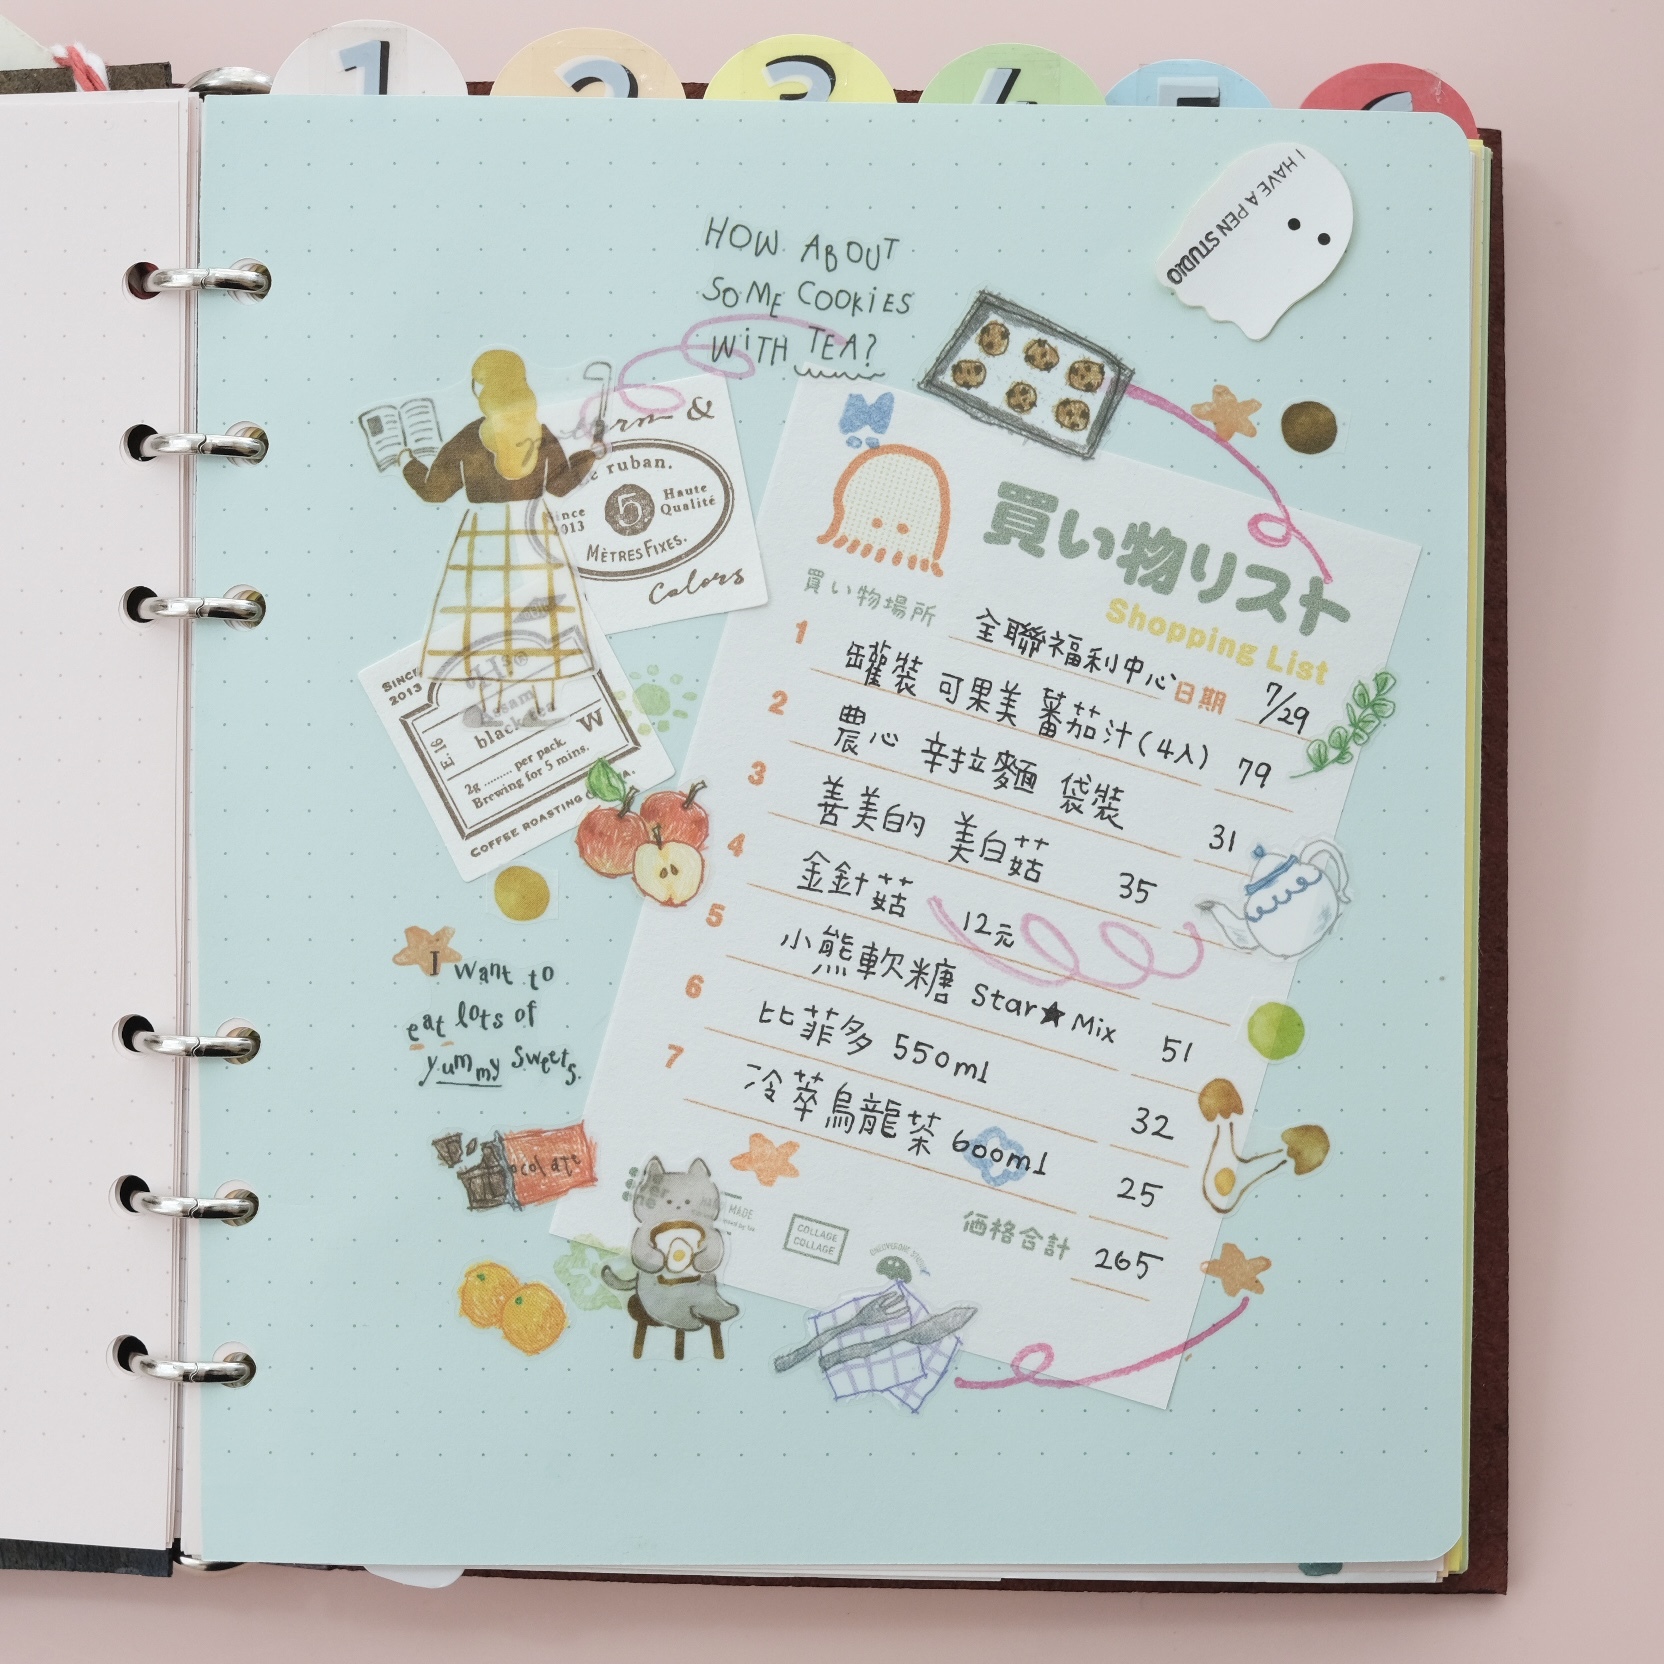 1
2
3
4
5
6
I HAVE A PEN STUDIO
HOW ABOUT
SOME COOKIES
WiTH TEA?
&
ruban.
Since
2013
5
Haute
Qualité
MÈTRES FIXES.
Colors
SINCE
2013
E-16
Assam
black tea
W
2g ......... per pack.
Brewing for 5 mins.
COFFEE ROASTING
買い物リスト
Shopping List
買い物場所 全聯福利中心 日期 7/29
1 罐裝 可果美 蕃茄汁(4入) 79
2 農心 辛拉麵 袋裝 31
3 善美的 美白菇 35
4 金針菇 12元
5 小熊軟糖 Star★Mix 51
6 比菲多 550ml 32
7 冷萃烏龍茶 600ml 25
価格合計 265
I want to
eat lots of
yummy sweets.
ocolate
MADE
COLLAGE
COLLAGE